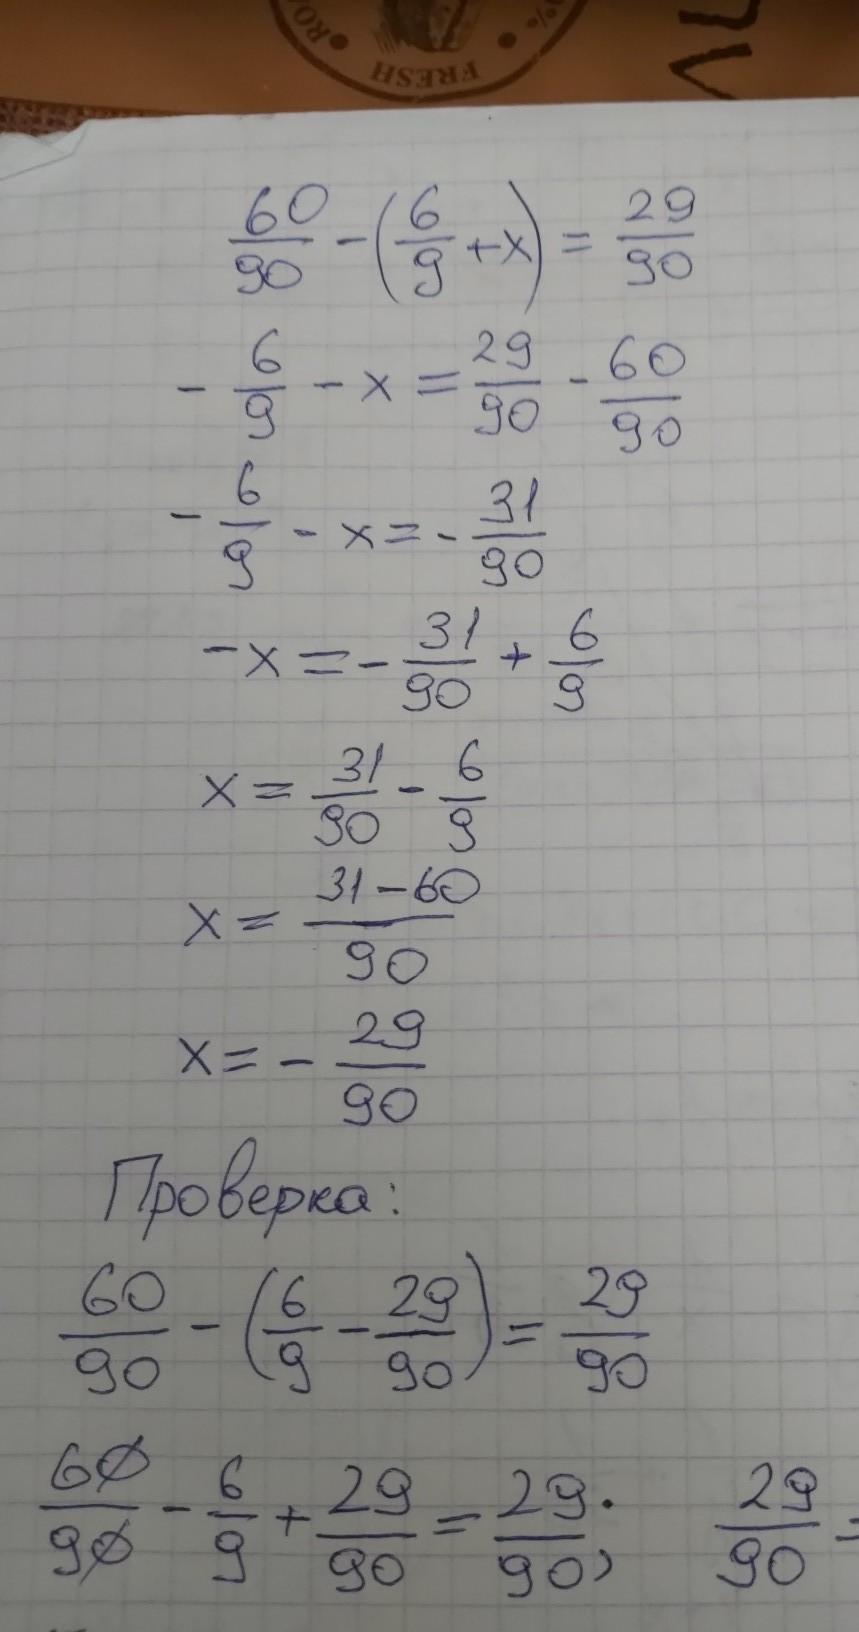 FRESH
60/90 - (6/9 + x) = 29/90
- 6/9 - x = 29/90 - 60/90
- 6/9 - x = - 31/90
- x = - 31/90 + 6/9
x = 31/90 - 6/9
x = (31 - 60)/90
x = - 29/90
Проверка:
60/90 - (6/9 - 29/90) = 29/90
60/90 - 6/9 + 29/90 = 29/90; 29/90 =